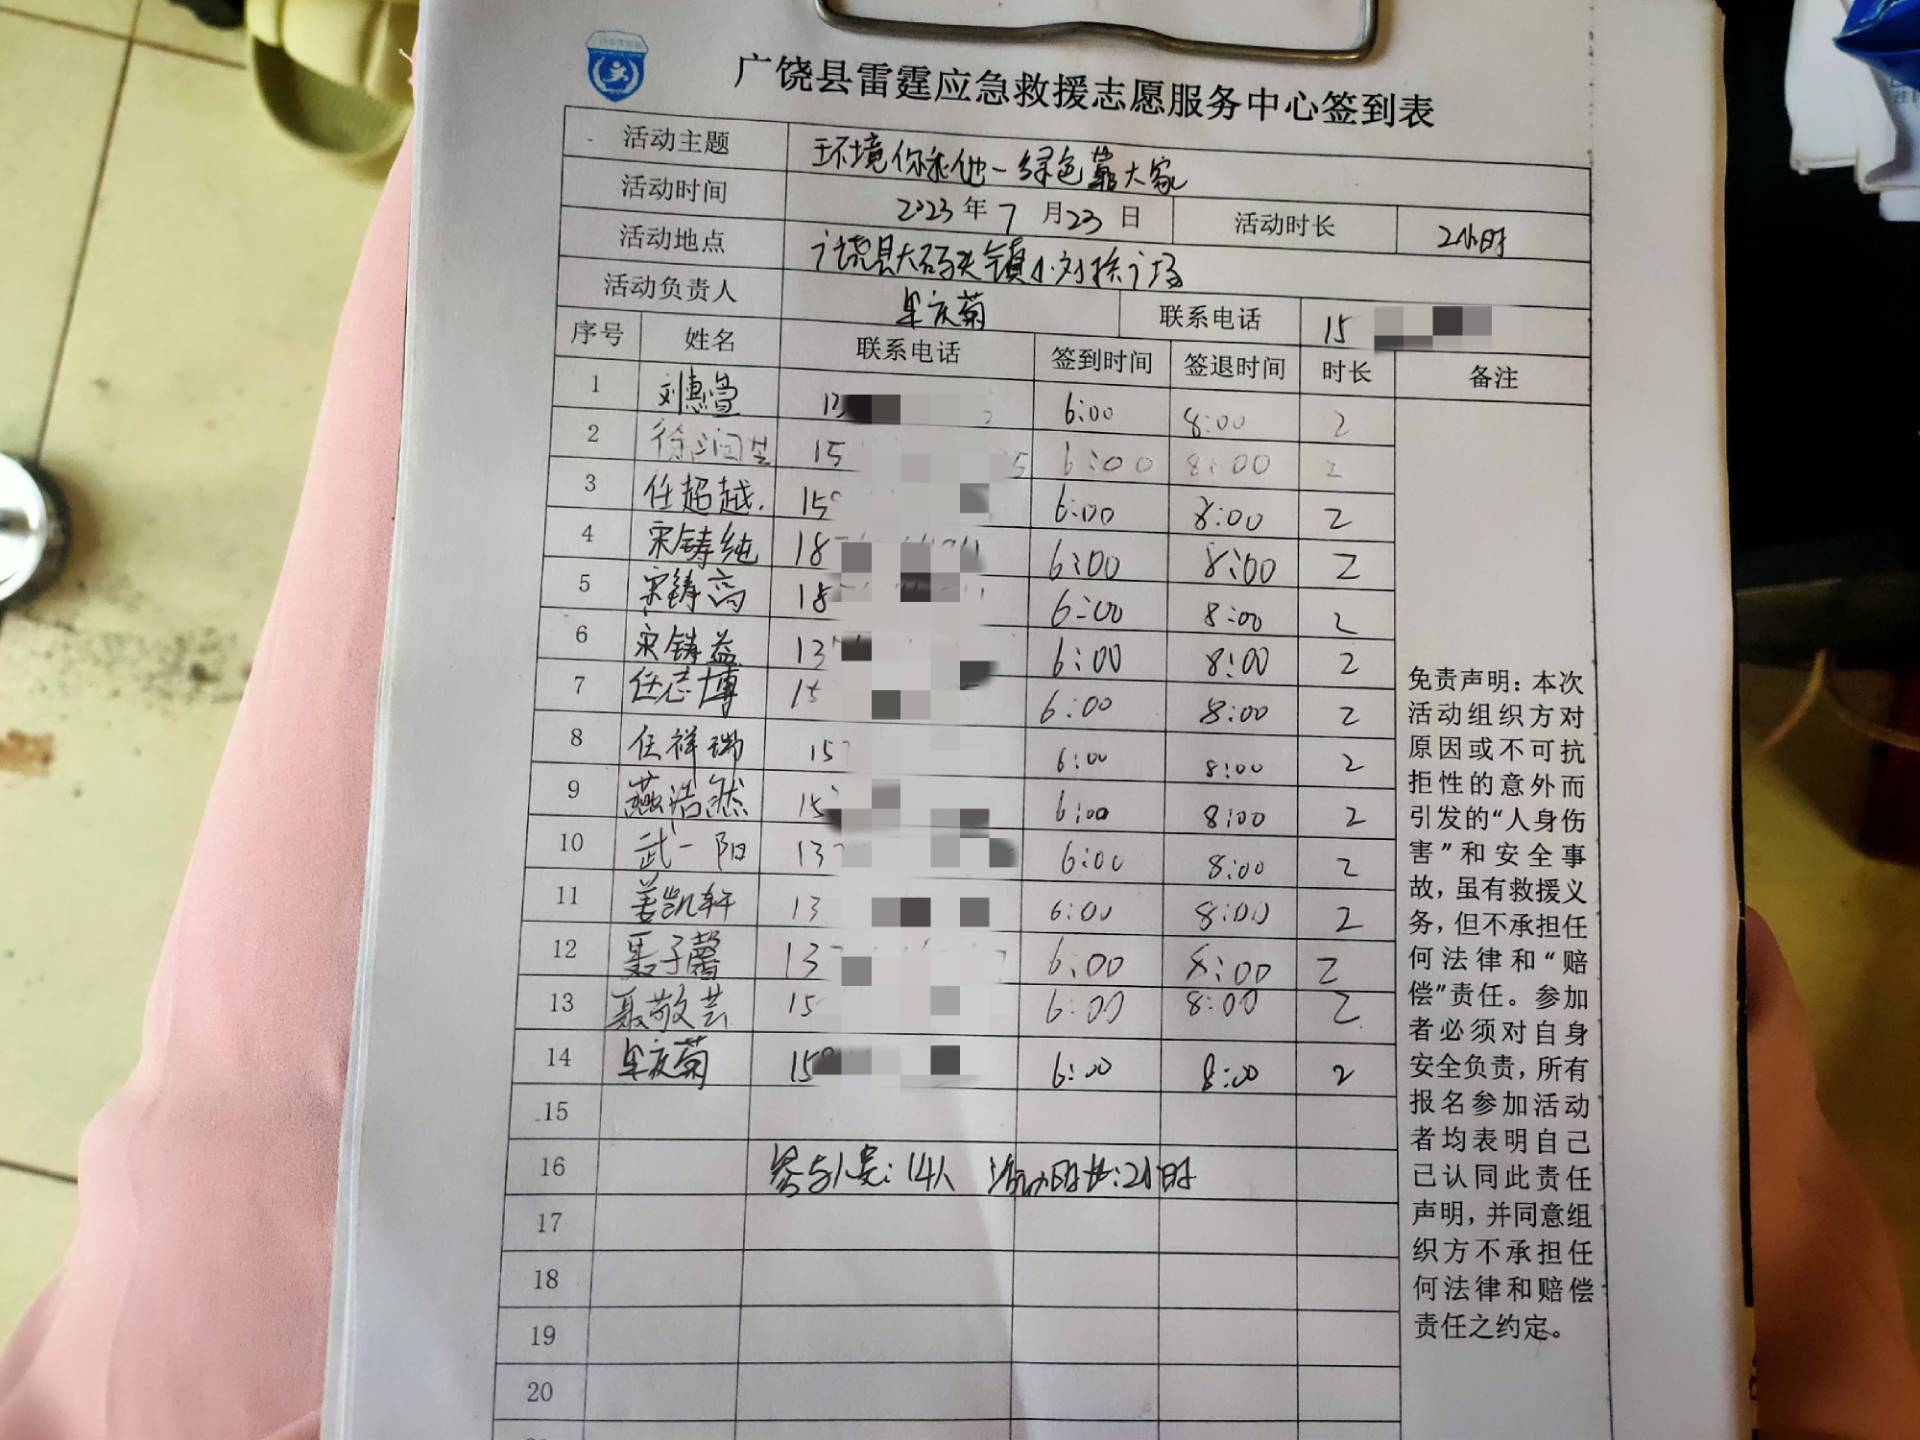 广饶县雷霆应急救援志愿服务中心签到表
活动主题 环境你和他一绿色靠大家
活动时间 2023年7月23日 活动时长 2小时
活动地点 广饶县大码头镇小刘桥广场
活动负责人 牟庆菊 联系电话 15
序号 姓名 联系电话 签到时间 签退时间 时长 备注
1 刘惠萱 13 6:00 8:00 2
2 徐润芝 15 6:00 8:00 2
3 任超越 159 6:00 8:00 2
4 宋铸纯 18 6:00 8:00 2
5 宋铸高 18 6:00 8:00 2
6 宋铸益 13 6:00 8:00 2
7 任志博 15 6:00 8:00 2
8 任祥瑞 15 6:00 8:00 2
9 燕浩然 15 6:00 8:00 2
10 武一阳 13 6:00 8:00 2
11 姜凯轩 13 6:00 8:00 2
12 聂子馨 13 6:00 8:00 2
13 聂敬芸 15 6:00 8:00 2
14 牟庆菊 15 6:00 8:00 2
15
16 参与人员:14人 活动时长:2小时
17
18
19
20
免责声明：本次
活动组织方对
原因或不可抗
拒性的意外而
引发的“人身伤
害”和安全事
故，虽有救援义
务，但不承担任
何法律和“赔
偿”责任。参加
者必须对自身
安全负责，所有
报名参加活动
者均表明自己
已认同此责任
声明，并同意组
织方不承担任
何法律和赔偿
责任之约定。